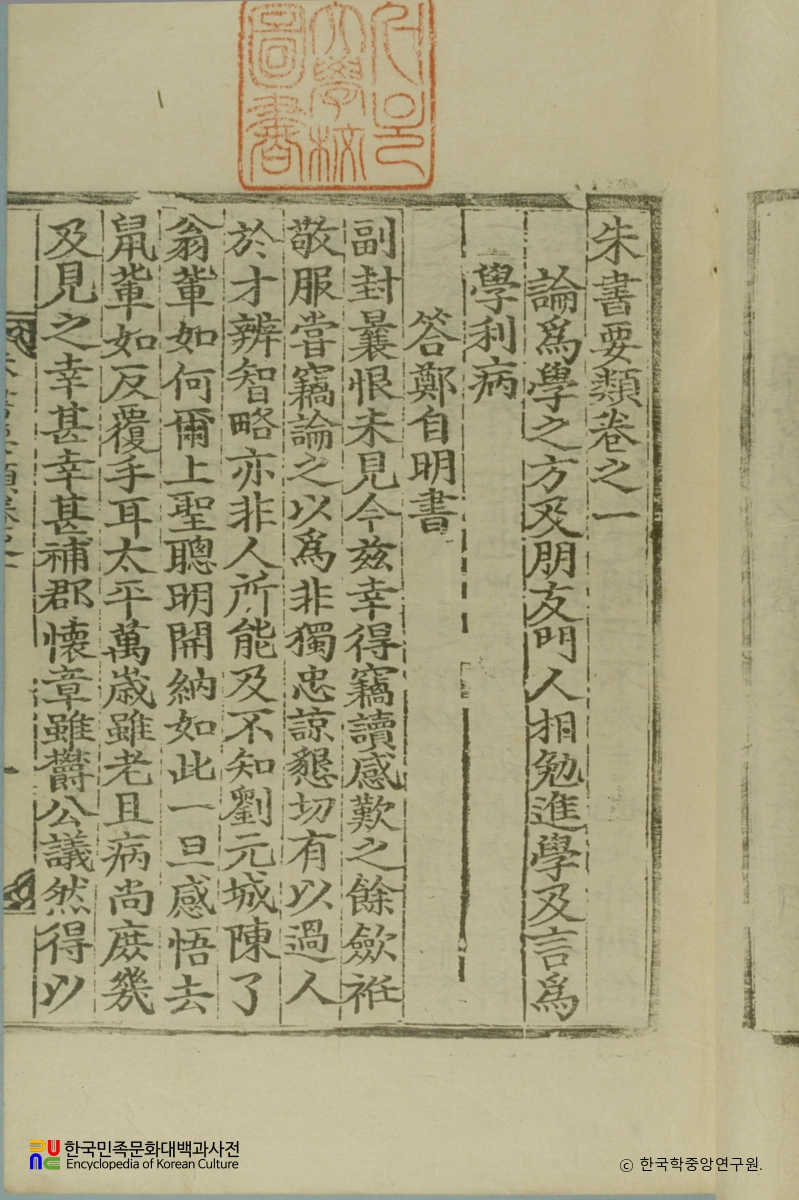 朱書要類卷之一
論爲學之方及朋友門人相勉進學及言爲
學利病
答鄭自明書
副封曩恨未見今玆幸得竊讀感歎之餘歛袵
敬服嘗竊論之以爲非獨忠諒懇切有以過人
於才辨智略亦非人所能及不知劉元城陳了
翁輩如何爾上聖聰明開納如此一旦感悟去
鼠輩如反覆手耳太平萬歲雖老且病尚庶幾
及見之幸甚幸甚補郡懷章雖欝公議然得以
한국민족문화대백과사전
Encyclopedia of Korean Culture
© 한국학중앙연구원.